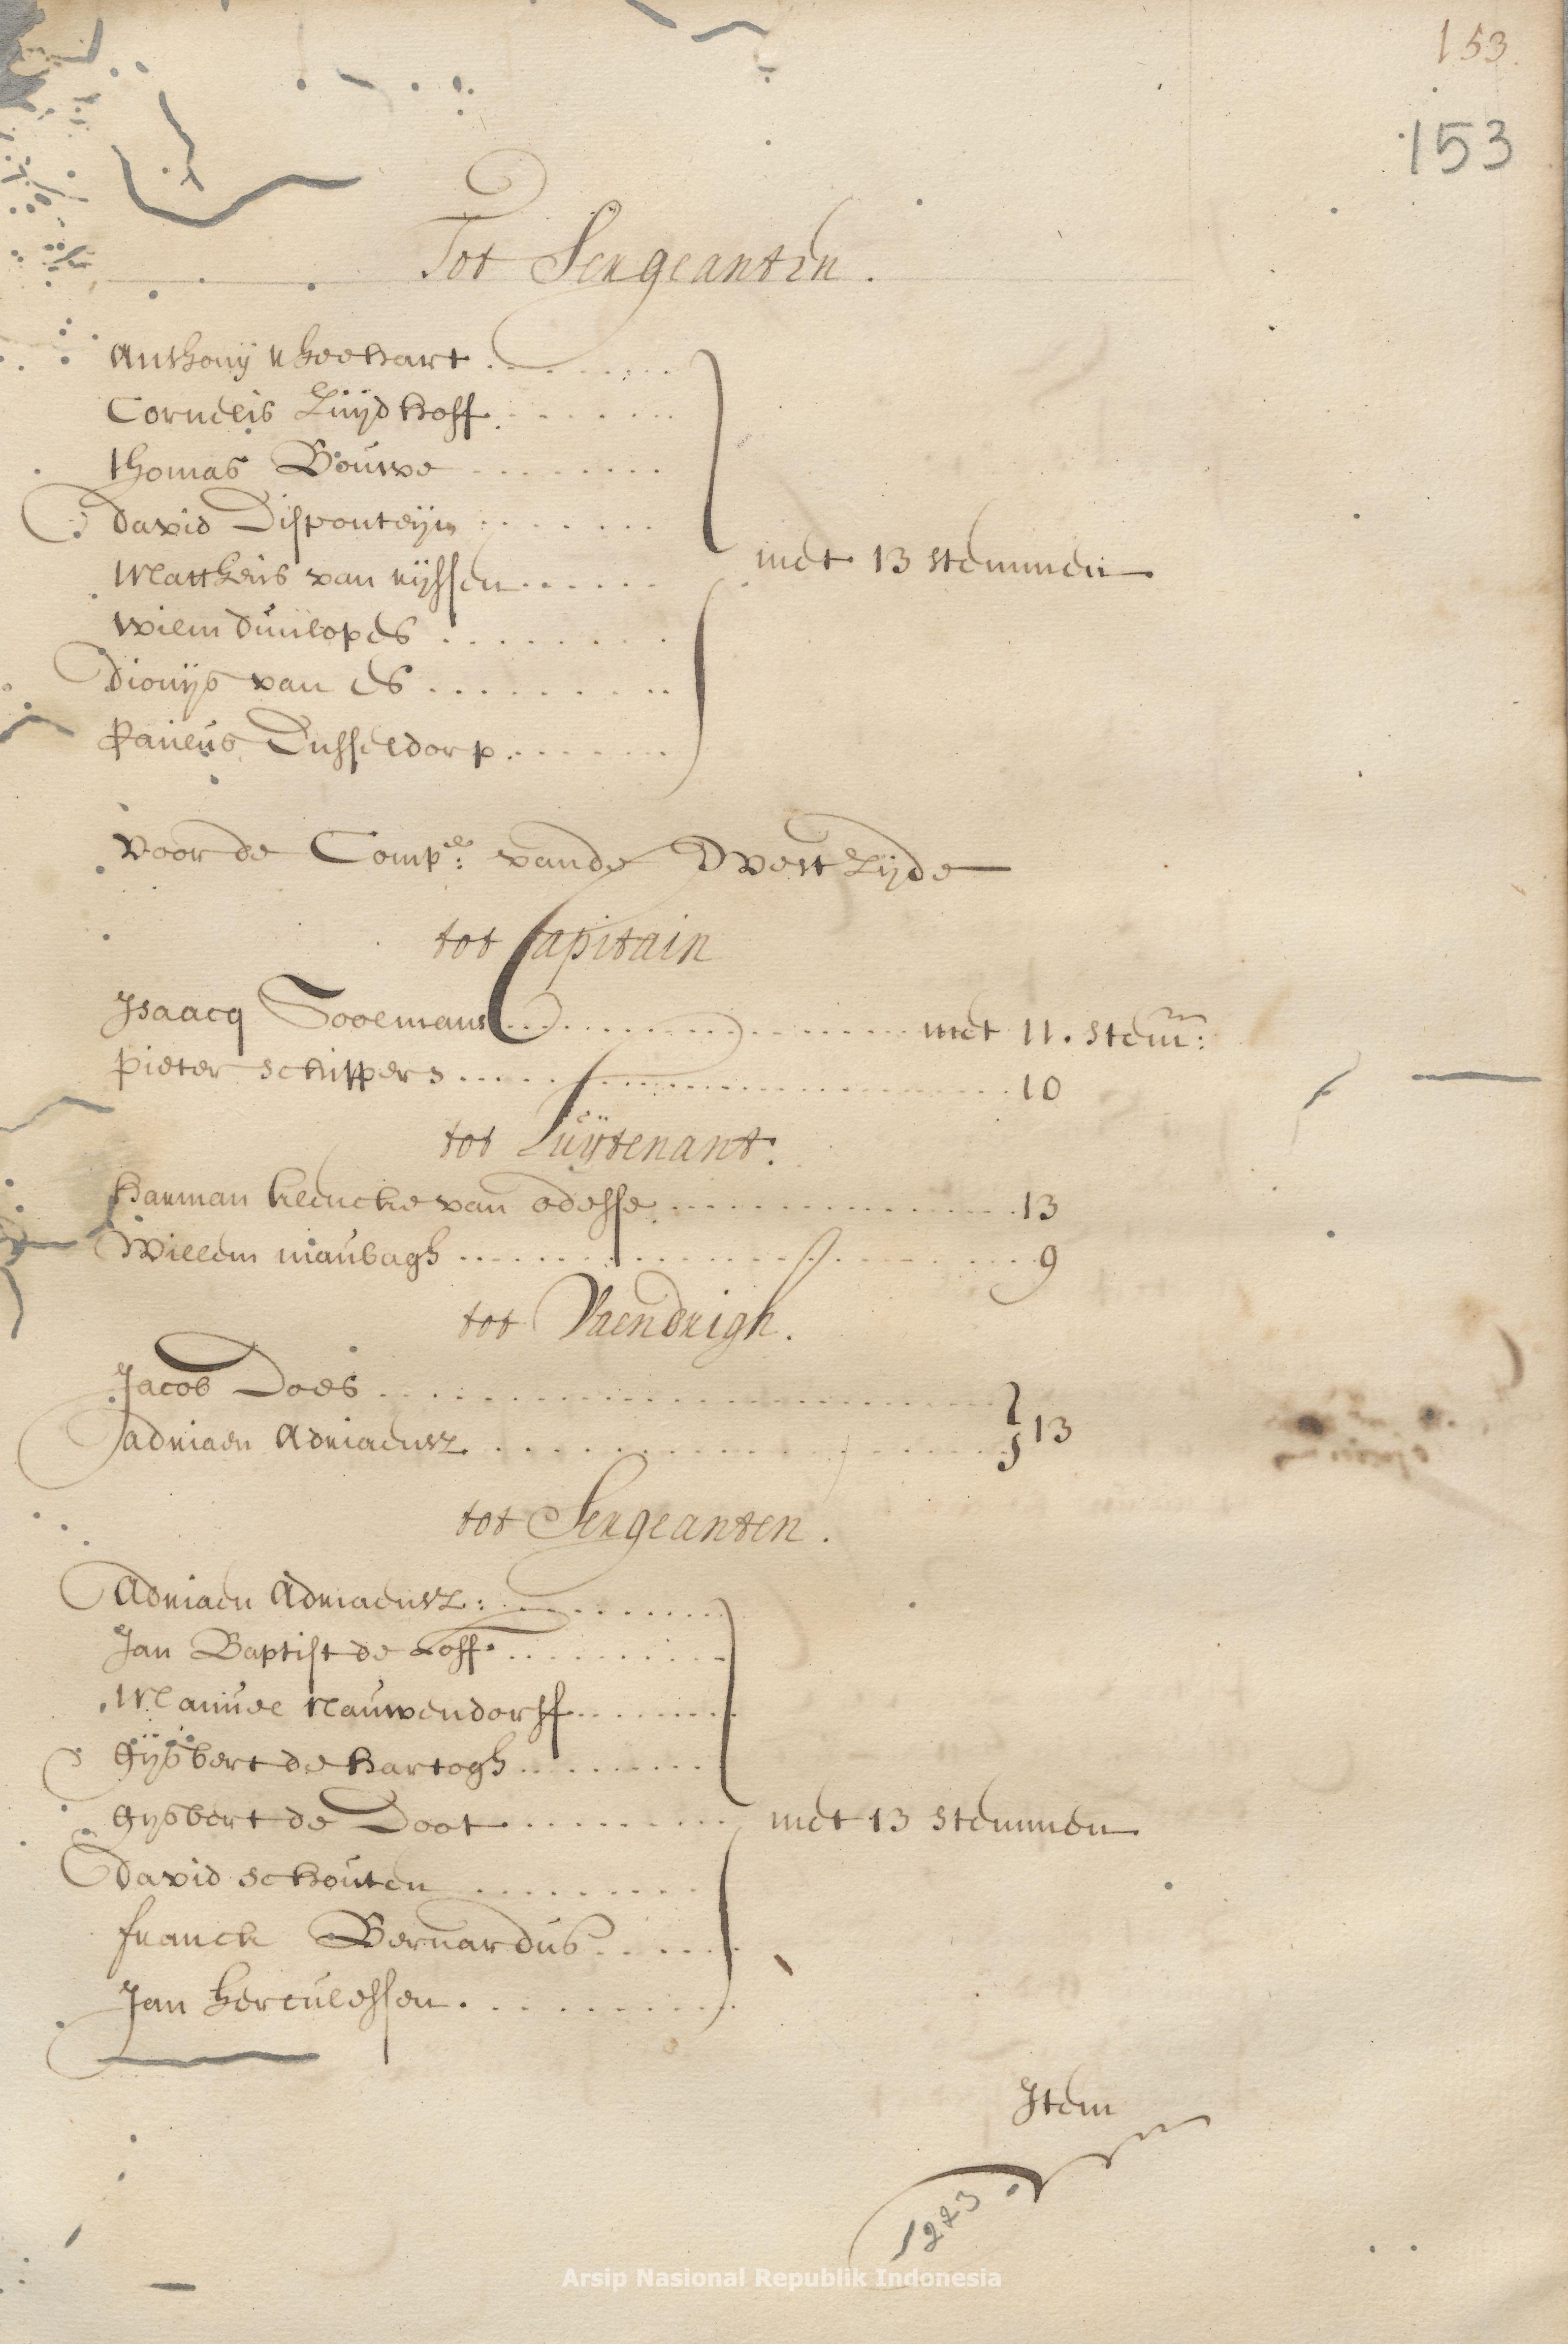 153
153
Tot Sergeanten.
Anthonij
Cornelis Zuijdhoff
Thomas Bouwe
David Disponteijn
Mattheus van nijssen
Wilem dunlopes
Dionijs van Es
Paulus Dusseldorp
voor de Compe: vande Westzijde
tot Capitain
Isaacq Soolemans met 11. stem:
Pieter schippers 10
tot Luijtenant:
Harman klencke van odesse 13
Willem maubagh 9
tot Vaendrigh.
Jacob Does
Adriaen Adriaensz 13
tot Sergeanten.
Adriaen Adriaensz:
Jan Baptist de Loff
Manuel Nauwendorff
Gijsbert de Hartogh
met 13 stemmen
Gijsbert de Doot
met 13 stemmen
David schouten
franck Bernardus
Jan herculessen
Item
1223
Arsip Nasional Republik Indonesia